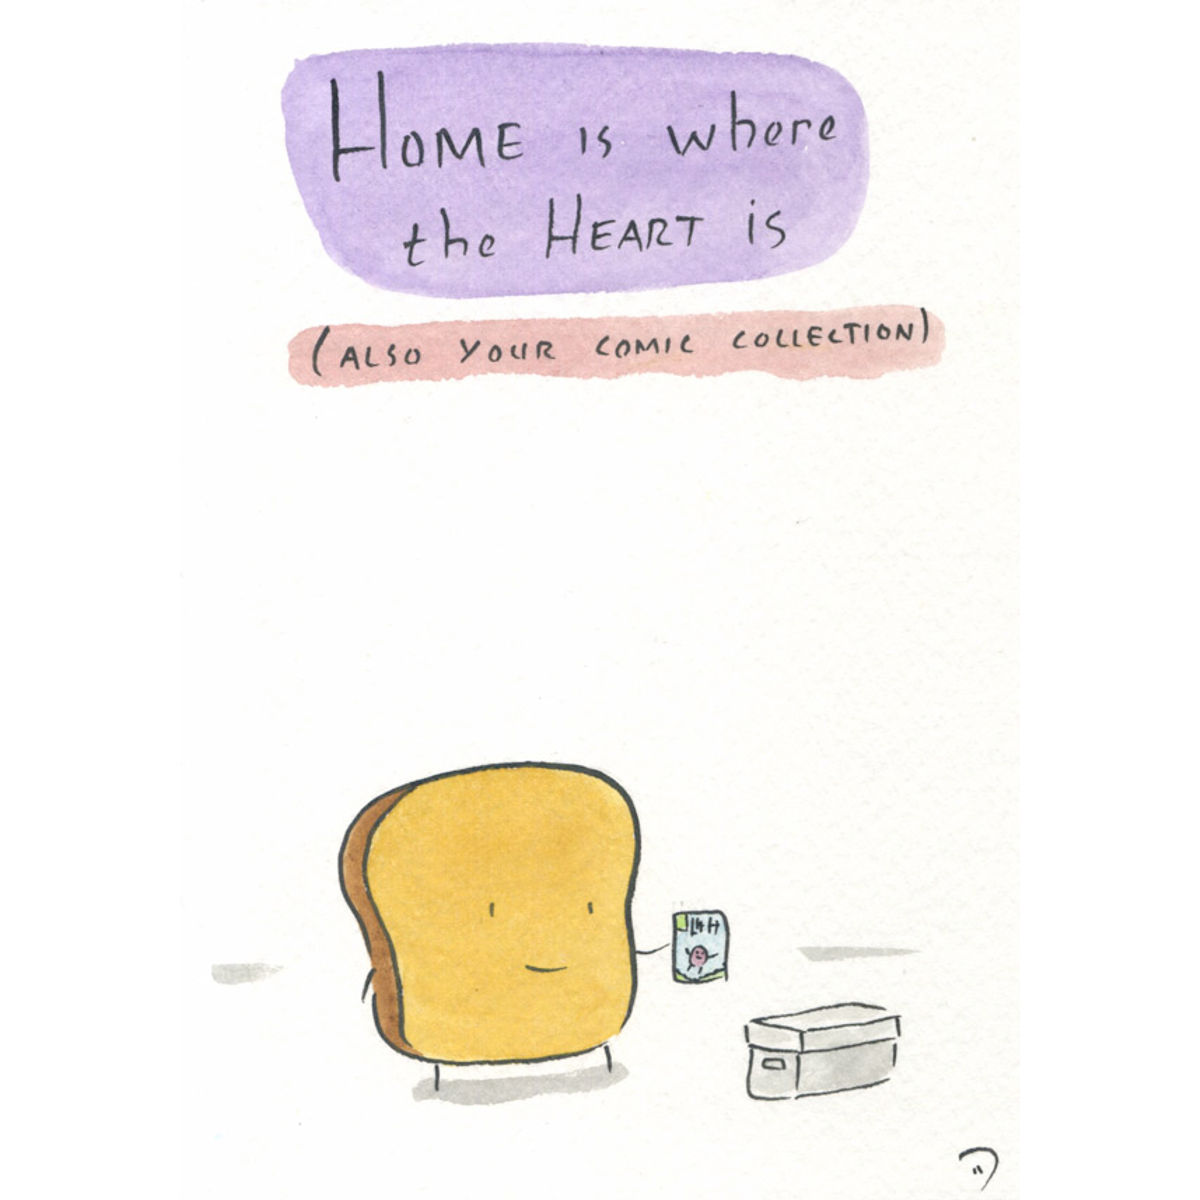 HOME is where
the HEART is
(ALSO YOUR COMIC COLLECTION)